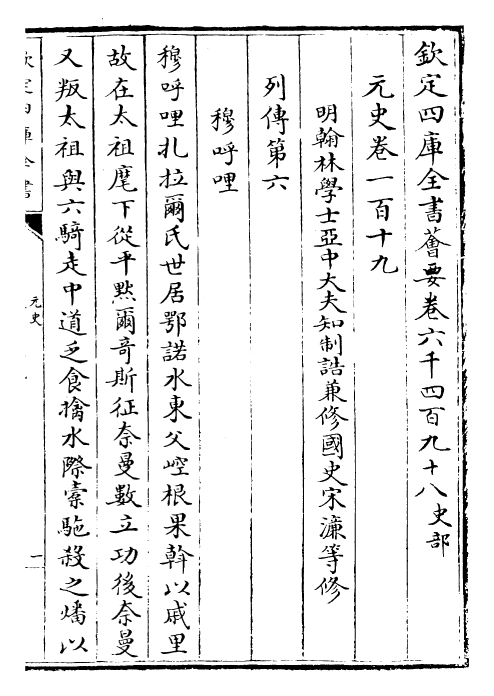 欽定四庫全書薈要卷六千四百九十八史部
元史卷一百十九
明翰林學士亞中大夫知制誥兼修國史宋濂等修
列傳第六
穆呼哩
穆呼哩扎拉爾氏世居鄂諾水東父崆根果斡以戚里
故在太祖麾下從平黙爾奇斯征奈曼數立功後奈曼
又叛太祖與六騎走中道乏食擒水際槖駞殺之燔以
欽定四庫全書
元史
一